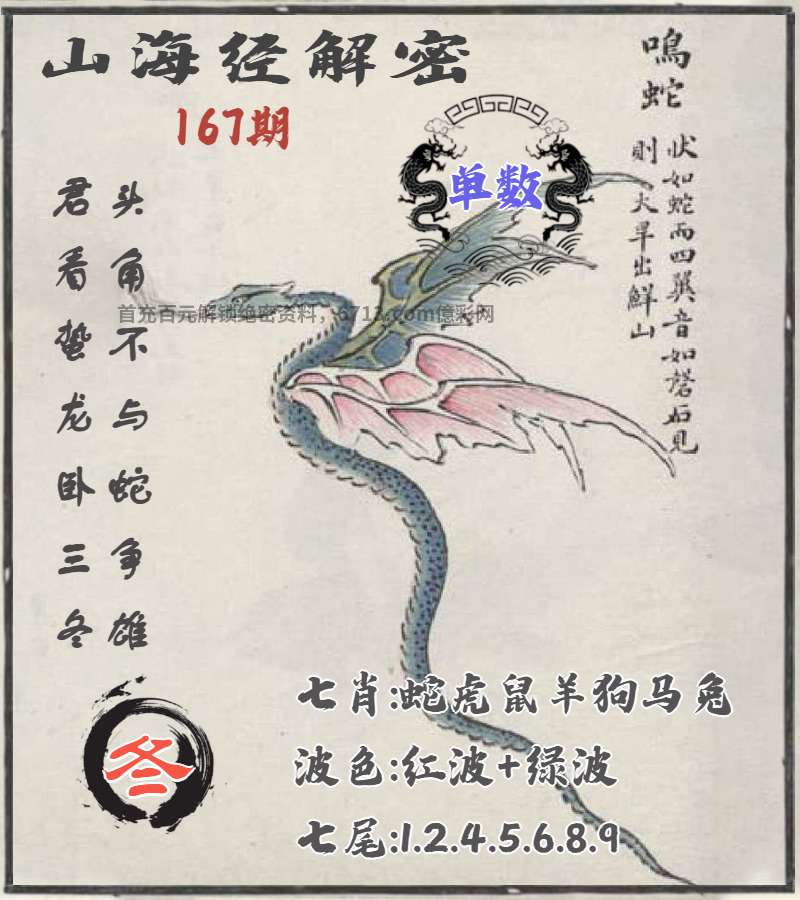 山海经解密
167期
鳴蛇
状如蛇而四翼音如磬石見
則大旱出鮮山
单数
君看蛰龙卧三冬
头角不与蛇争雄
首充百元解锁绝密资料，6713.com億彩网
七肖:蛇虎鼠羊狗马兔
冬
波色:红波+绿波
七尾:1.2.4.5.6.8.9